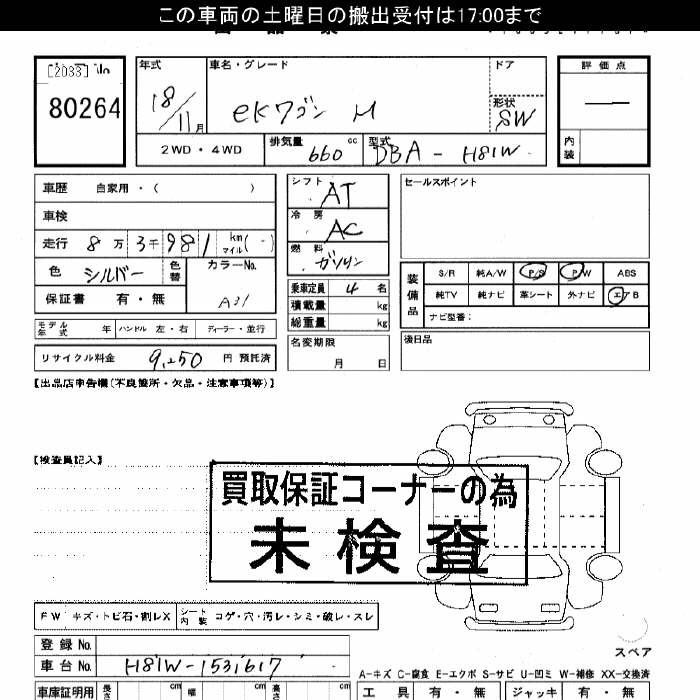 この車両の土曜日の搬出受付は17:00まで
[2033] No
80264
年式 車名・グレード ドア 評価点
18/11月 eKワゴン M 形状 SW
2WD・4WD 排気量 660 cc 型式 DBA-H81W 内装
車歴 自家用・( )
車検
走行 8万3千981 km マイル(-)
色 シルバー 色替 カラーNo.
保証書 有・無 A31
モデル年式 年 ハンドル 左・右 ディーラー・並行
リサイクル料金 9,250 円 預託済
シフト AT
冷房 AC
燃料 ガソリン
乗車定員 4 名
積載量 kg
総重量 kg
名変期限
月 日
セールスポイント
装備品 S/R 純A/W P/S P/W ABS
純TV 純ナビ 革シート 外ナビ エアB
ナビ型番:
後日品
【出品店申告欄(不良箇所・欠品・注意事項等)】
【検査員記入】
買取保証コーナーの為
未検査
FW キズ・トビ石・割レX シート内装 コゲ・穴・汚レ・シミ・破レ・スレ
登録No.
車台No. H81W-1531617
スペア
A-キズ C-腐食 E-エクボ S-サビ U-凹ミ W-補修 XX-交換済
車庫証明用 長さ cm 幅 cm 高さ cm 工具 有・無 ジャッキ 有・無